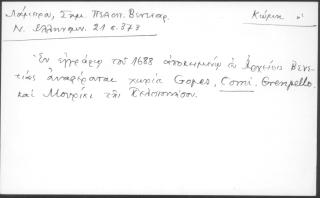 Λάμπρου, Σημ. Πελοπ. Βενεταρ. Κώμη
Ν. Ελληνομν. 21 σ. 373
Ἐν ἐγγράφῳ τοῦ 1688 ἀποκειμένῳ ἐν Ἀρχείοις Βενε-
τίας ἀναφέρονται χωρία Gopes, Comi, Grenpello
καὶ Μουρίκι τῆς Πελοποννήσου.